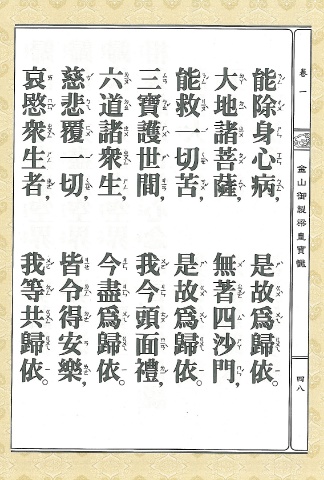 卷一
金山御製梁皇寶懺
四八
能除身心病，是故為歸依。
大地諸菩薩，無著四沙門，
能救一切苦，是故為歸依。
三寶護世間，我今頭面禮，
六道諸眾生，今盡為歸依。
慈悲覆一切，皆令得安樂，
哀愍眾生者，我等共歸依。